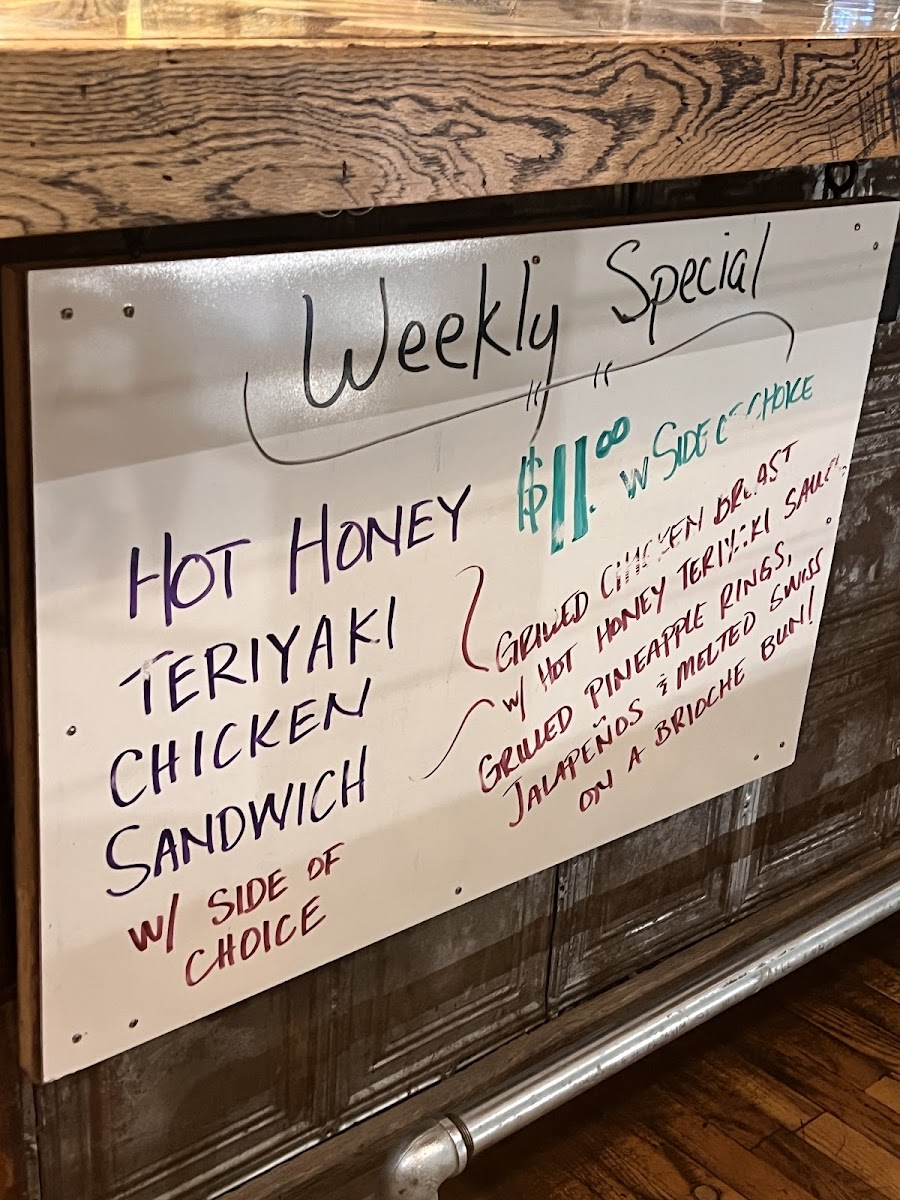 Weekly Special
$11.00 w SIDE OF CHOICE
HOT HONEY
TERIYAKI
CHICKEN
SANDWICH
W/ SIDE OF
CHOICE
GRILLED CHICKEN BREAST
w/ HOT HONEY TERIYAKI SAUCE,
GRILLED PINEAPPLE RINGS,
JALAPEÑOS & MELTED SWISS
ON A BRIOCHE BUN!